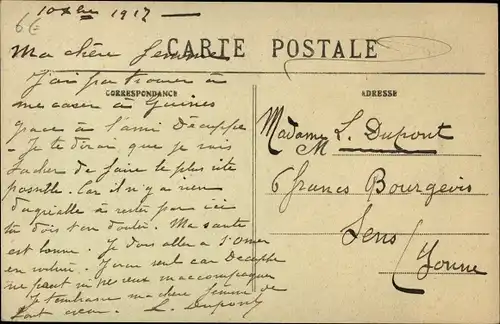 10 Xbre 1917
6€
Ma chère femme
CARTE POSTALE
CORRESPONDANCE
J'ai pu trouver à
me caser à Guines
grace à l'ami Décuppe
- Je te dirai que je vais
tacher de faire le plus vite
possible. Car il n'y a rien
d'agréable à rester par ici
tu dois t'en douter. Ma santé
est bonne. Je dois aller a St Omer
en voiture. J'irai seul car Décuppe
ne peut m'accompagner
Je t'embrasse ma chère femme de
tout cœur. L. Dupont
ADRESSE
Madame L. Dupont
M
6 francs Bourgeois
Sens
Yonne